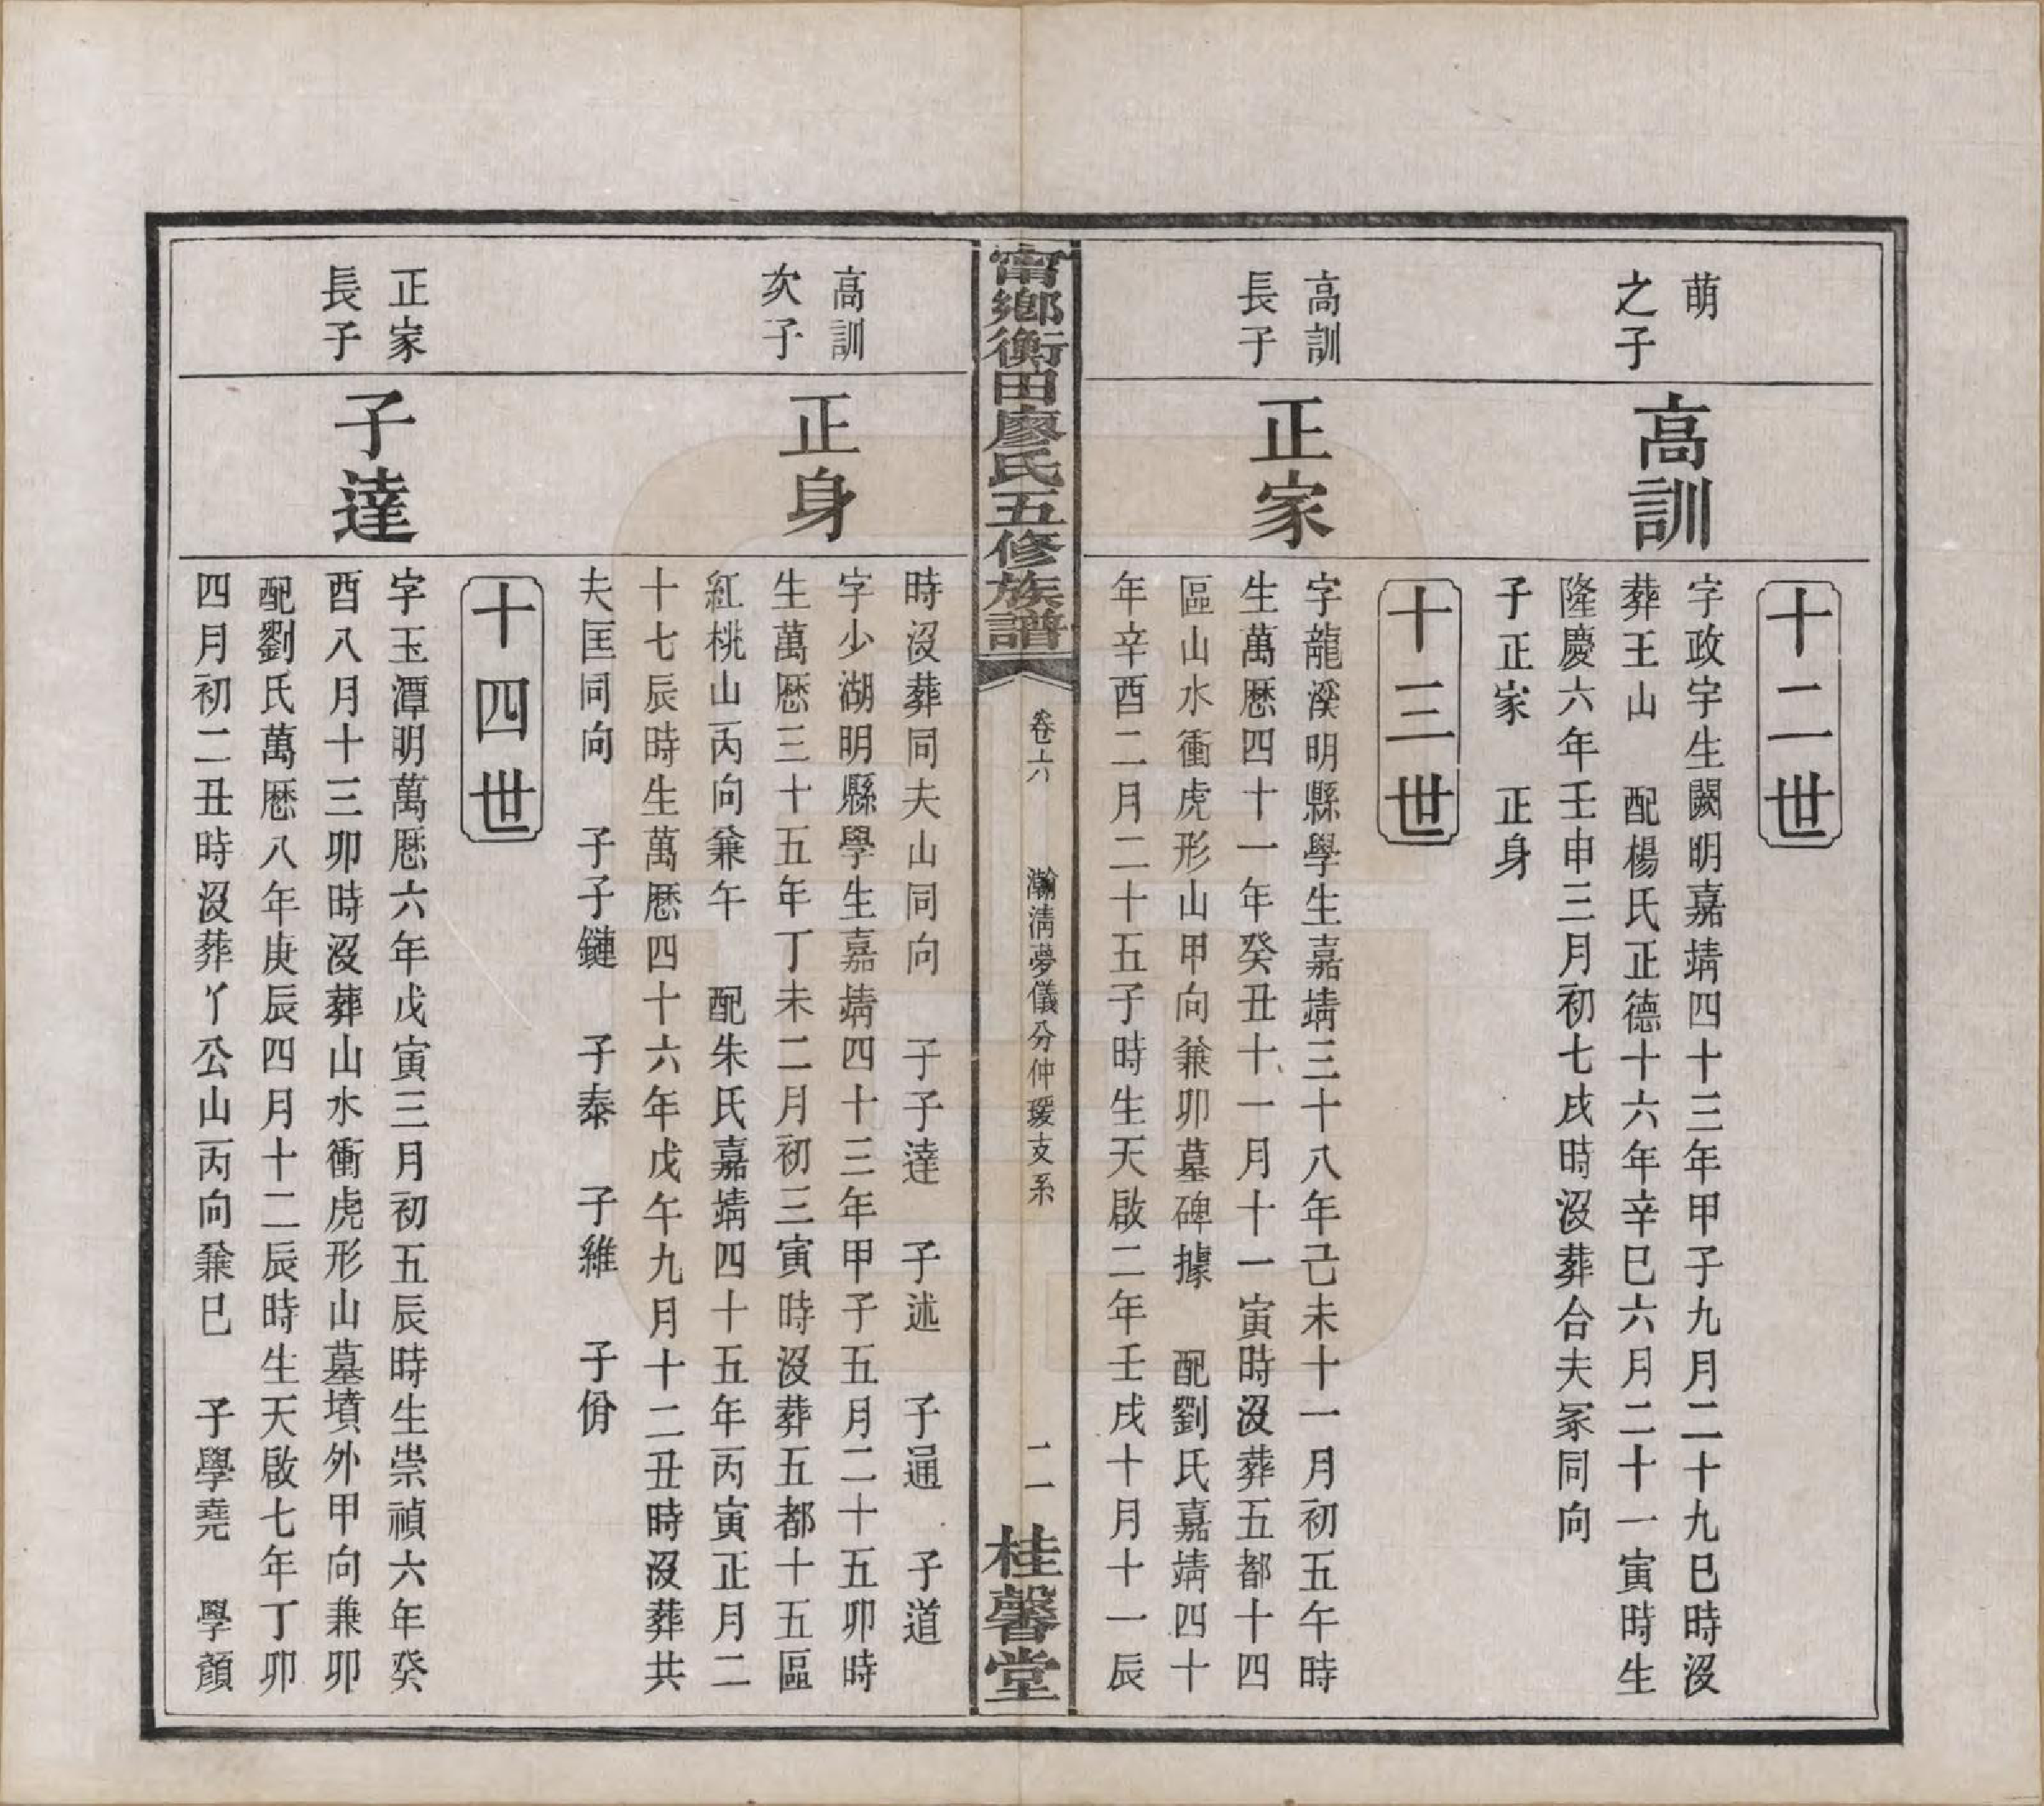 十二世
萌
之子
高訓
字政宇生闕明嘉靖四十三年甲子九月二十九巳時沒
葬王山　配楊氏正德十六年辛巳六月二十一寅時生
隆慶六年壬申三月初七戌時沒葬合夫冢同向
子正家　正身
十三世
高訓
長子
正家
字龍溪明縣學生嘉靖三十八年己未十一月初五午時
生萬厯四十一年癸丑十一月十一寅時沒葬五都十四
區山水衝虎形山甲向兼卯墓碑據　配劉氏嘉靖四十
年辛酉二月二十五子時生天啟二年壬戌十月十一辰
甯鄉衡田廖氏五修族譜
卷六
瀚淸夢儀分仲瑗支系
二一
桂馨堂
時沒葬同夫山同向　子子達　子述　子通　子道
高訓
次子
正身
字少湖明縣學生嘉靖四十三年甲子五月二十五卯時
生萬厯三十五年丁未二月初三寅時沒葬五都十五區
紅桃山丙向兼午　配朱氏嘉靖四十五年丙寅正月二
十七辰時生萬厯四十六年戊午九月十二丑時沒葬共
夫匡同向　子子鏈　子泰　子維　子佾
十四世
正家
長子
子達
字玉潭明萬厯六年戊寅三月初五辰時生崇禎六年癸
酉八月十三卯時沒葬山水衝虎形山墓墳外甲向兼卯
配劉氏萬厯八年庚辰四月十二辰時生天啟七年丁卯
四月初二丑時沒葬丫公山丙向兼巳　子學堯　學顏